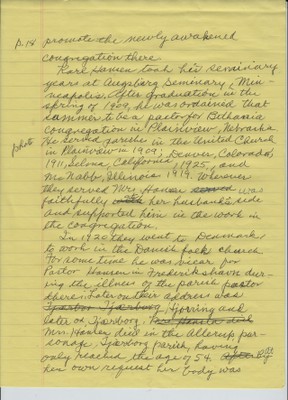 p.14 promote the newly awakened
congregation there.
Karl Hansen took his seminary
years at Augsburg Seminary, Min-
neapolis. After graduation in the
spring of 1909, he was ordained that
summer to be a pastor for Bethania
congregation in Plainview, Nebraska
photo He served parishes in the United Church
in Plainview in 1909; Denver, Colorado,
1911, Selma, California, 1925, and
McNabb, Illinois 1919. Wherever
they served Mrs. Hansen was
faithfully her husband's side
and supported him in the work in
the congregation.
In 1920 they went to Denmark
to work in the Danish folk church
For some time he was vicar for
Pastor Hansen in Frederikshavn dur-
ing the illness of the parish pastor
there. Later on their address was
Hjorring and
later on Tjæreborg.
Mrs. Hansen died in the Allerup par-
sonage, Tjæreborg parish, having
only reached the age of 54. At
her own request her body was